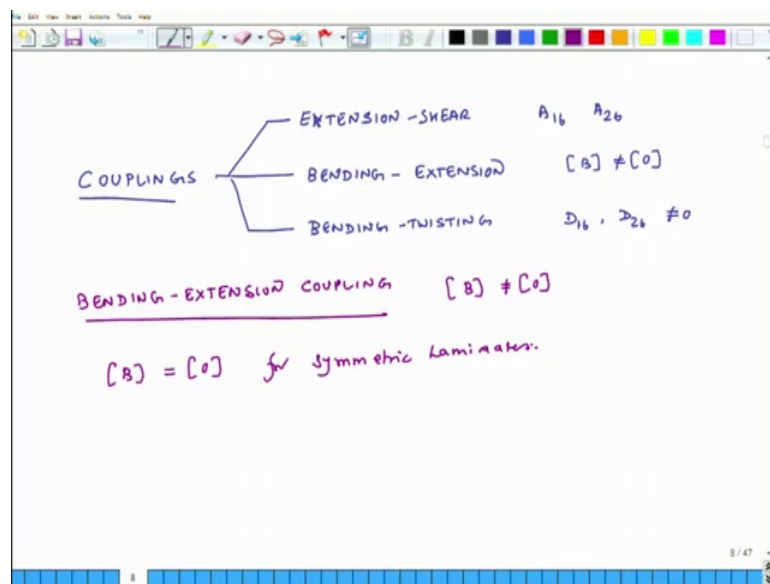 File Edit View Insert Actions Tools Help
B I
EXTENSION-SHEAR A16 A26
COUPLINGS BENDING-EXTENSION [B] ≠ [0]
BENDING-TWISTING D16, D26 ≠0
BENDING-EXTENSION COUPLING [B] ≠ [0]
[B] = [0] for symmetric Laminates.
8/47
8